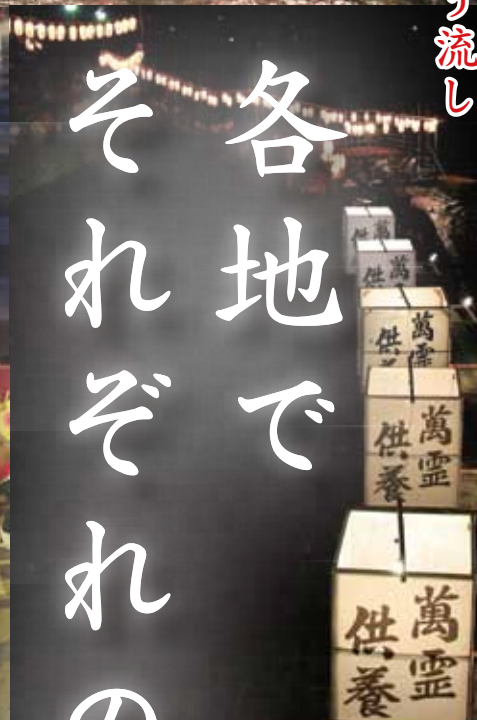 流し
各地で
それぞれの
萬
供
萬
供
萬霊
供
萬霊
供養
萬霊
供養